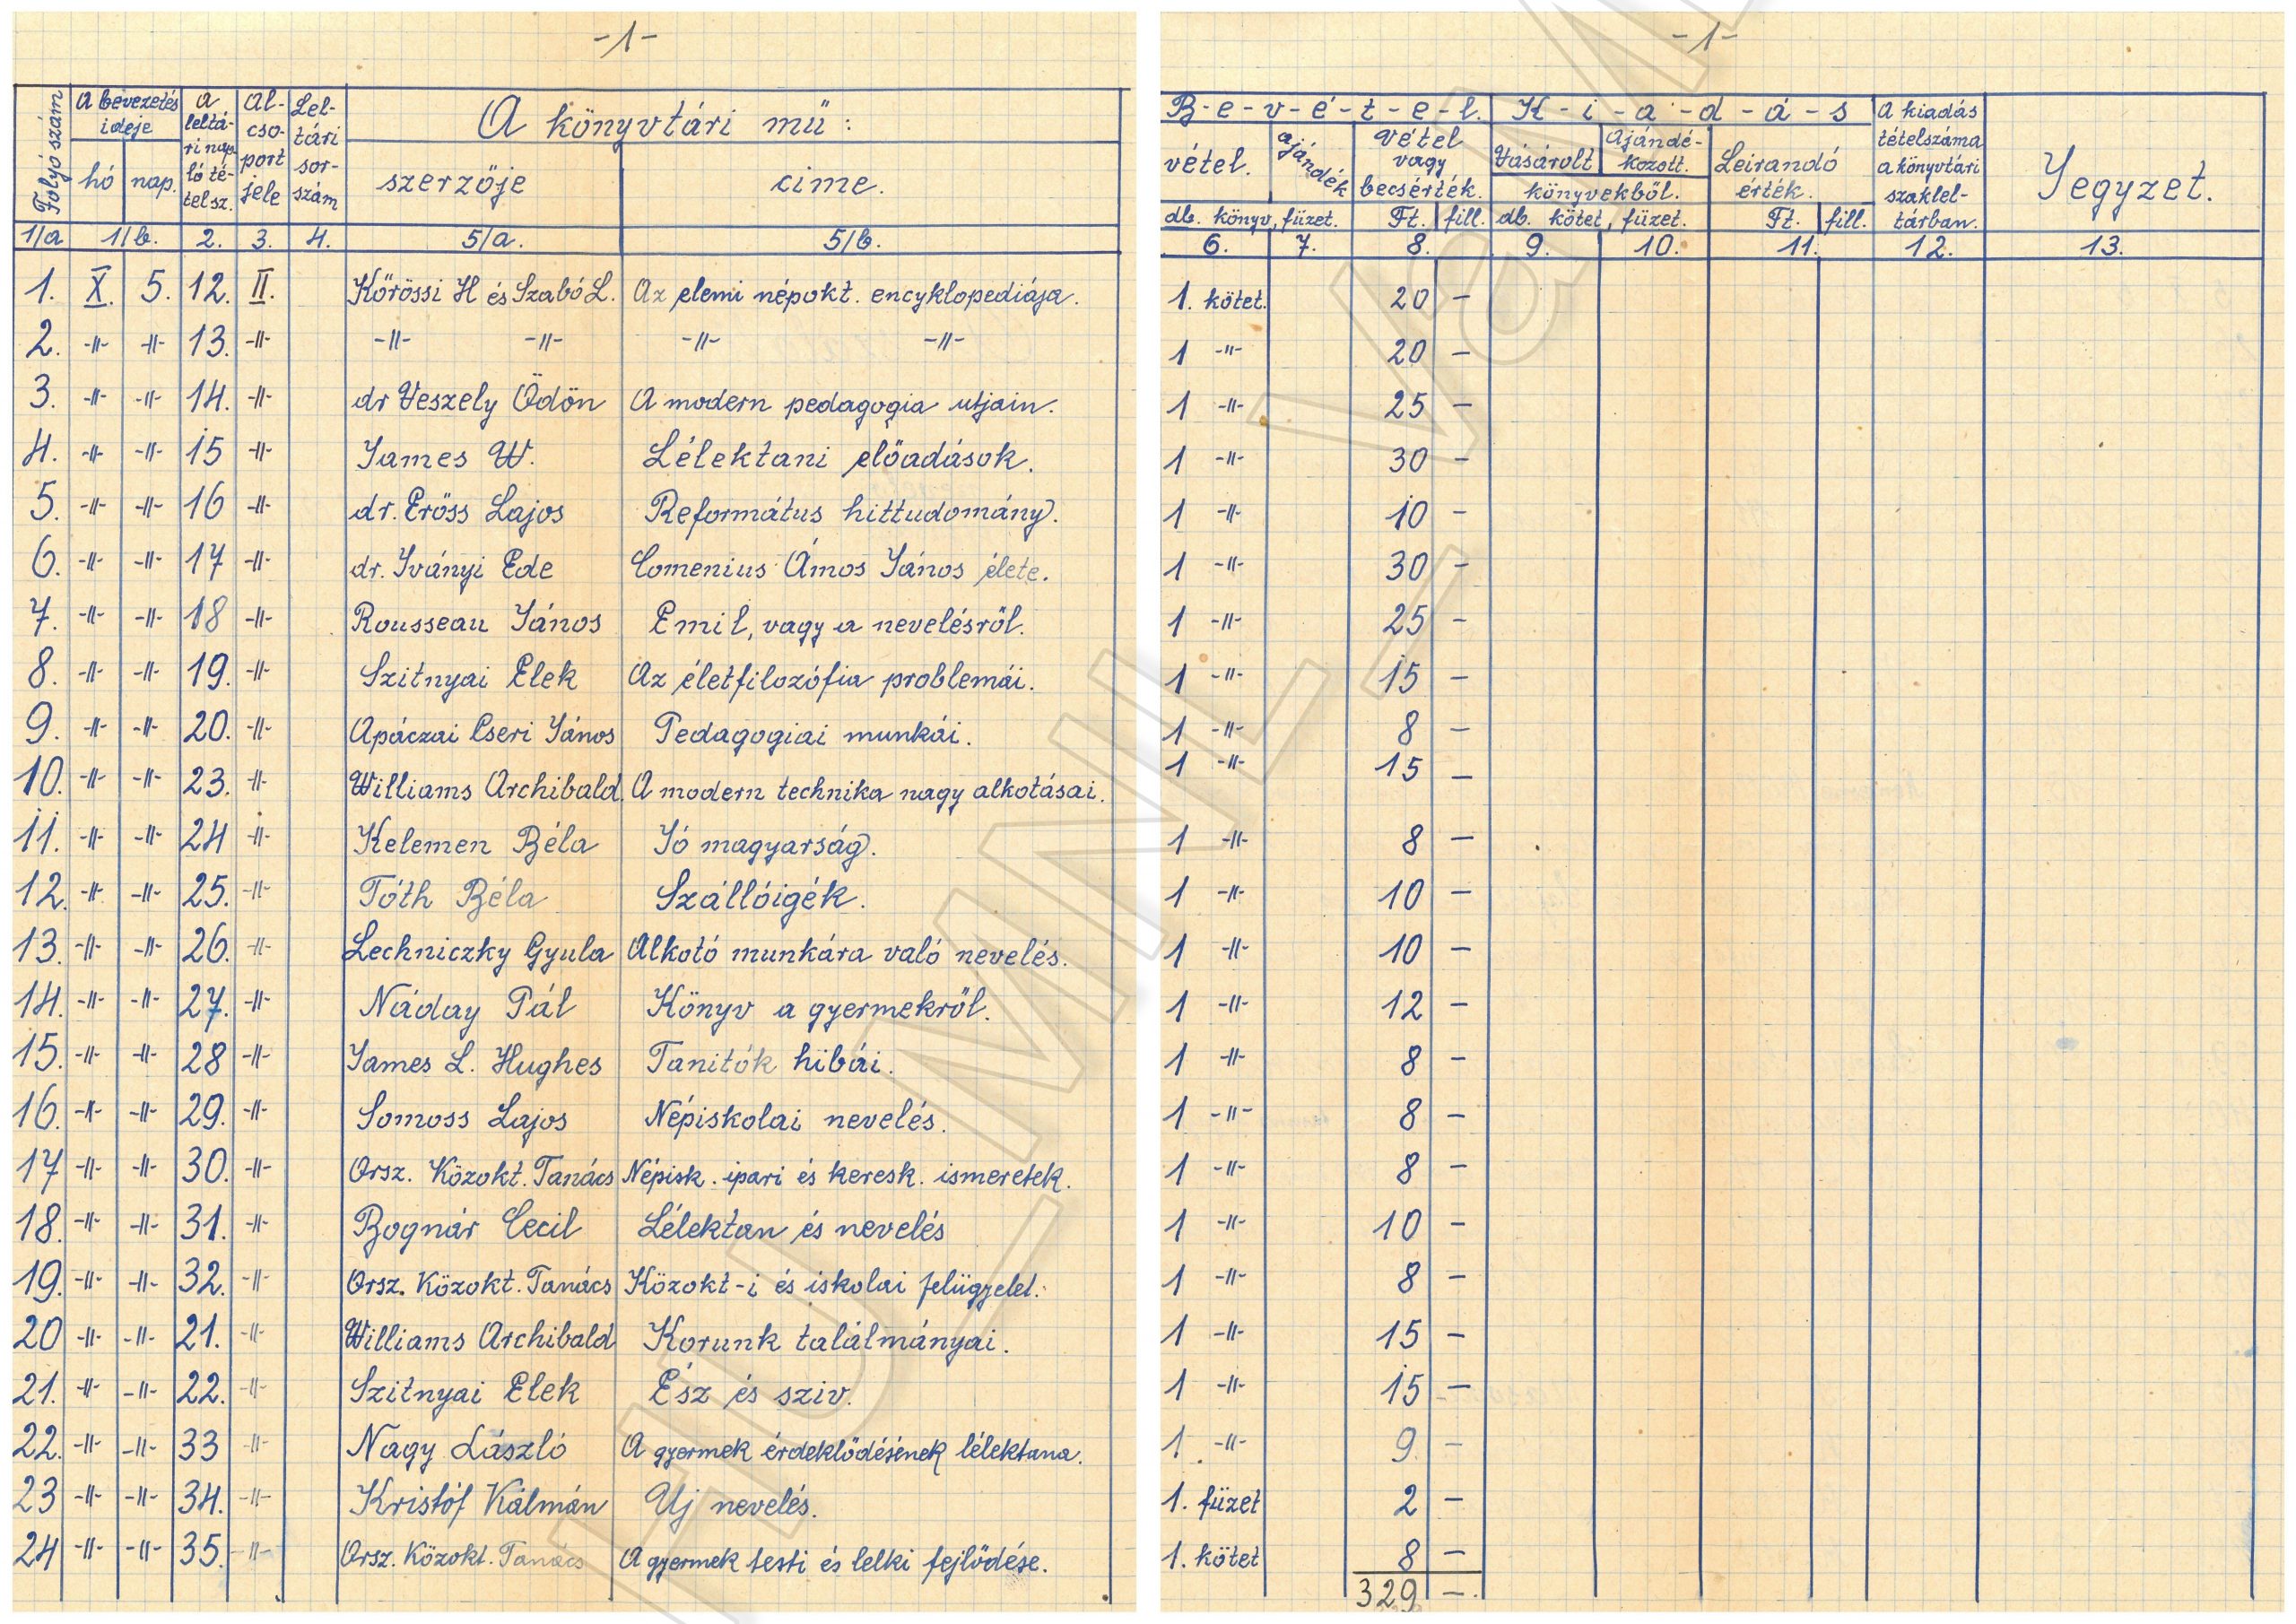 -1-
Folyó szám
A bevezetés ideje
hó
nap.
A leltári napló tételsz.
Alcsoport jele
Leltári sorszám
A könyvtári mű:
szerzője
címe.
1/a 1/b. 2. 3. 4. 5/a. 5/b.
1. X. 5. 12. II. Kőrössi H és Szabó L. Az elemi népokt. encyklopediája.
2. -||- -||- 13. -||- -||- -||- -||- -||-
3. -||- -||- 14. -||- dr Veszely Ödön A modern pedagogia utjain.
4. -||- -||- 15 -||- James W. Lélektani előadások.
5. -||- -||- 16 -||- dr. Erőss Lajos Református hittudomány.
6. -||- -||- 17 -||- dr. Iványi Ede Comenius Ámos János élete.
7. -||- -||- 18 -||- Rousseau János Emil, vagy a nevelésről.
8. -||- -||- 19. -||- Szitnyai Elek Az életfilozófia problemái.
9. -||- -||- 20. -||- Apáczai Cseri János Pedagogiai munkái.
10. -||- -||- 23. -||- Williams Archibald. A modern technika nagy alkotásai.
11. -||- -||- 24 -||- Kelemen Béla Jó magyarság.
12. -||- -||- 25. -||- Tóth Béla Szállóigék.
13. -||- -||- 26. -||- Lechniczky Gyula Alkotó munkára való nevelés.
14. -||- -||- 27. -||- Náday Pál Könyv a gyermekről.
15. -||- -||- 28 -||- James L. Hughes Tanitók hibái.
16. -||- -||- 29. -||- Somoss Lajos Népiskolai nevelés.
17 -||- -||- 30. -||- Orsz. Közokt. Tanács Népisk. ipari és keresk. ismeretek.
18. -||- -||- 31. -||- Bognár Cecil Lélektan és nevelés
19. -||- -||- 32. -||- Orsz. Közokt. Tanács Közokt-i és iskolai felügyelet.
20 -||- -||- 21. -||- Williams Archibald Korunk találmányai.
21. -||- -||- 22. -||- Szitnyai Elek Ész és sziv.
22. -||- -||- 33 -||- Nagy László A gyermek érdeklődésének lélektana.
23 -||- -||- 34. -||- Kristóf Kálmán Uj nevelés.
24 -||- -||- 35. -||- Orsz. Közokt. Tanács A gyermek testi és lelki fejlődése.
-1-
B-e-v-é-t-e-l.
vétel.
ajándék
vétel vagy becsérték.
db. könyv, füzet.
Ft. fill.
K-i-a-d-á-s
Vásárolt
Ajándékozott.
könyvekből.
db. kötet, füzet.
Leirandó érték.
Ft. fill.
A kiadás tételszáma a könyvtári szakleltárban.
Jegyzet.
6. 7. 8. 9. 10. 11. 12. 13.
1. kötet. 20 -
1 -||- 20 -
1 -||- 25 -
1 -||- 30 -
1 -||- 10 -
1 -||- 30 -
1 -||- 25 -
1 -||- 15 -
1 -||- 8 -
1 -||- 15 -
1 -||- 8 -
1 -||- 10 -
1 -||- 10 -
1 -||- 12 -
1 -||- 8 -
1 -||- 8 -
1 -||- 8 -
1 -||- 10 -
1 -||- 8 -
1 -||- 15 -
1 -||- 15 -
1. -||- 9 -
1. füzet 2 -
1. kötet 8 -
329 -.
HU_MNL_VaML